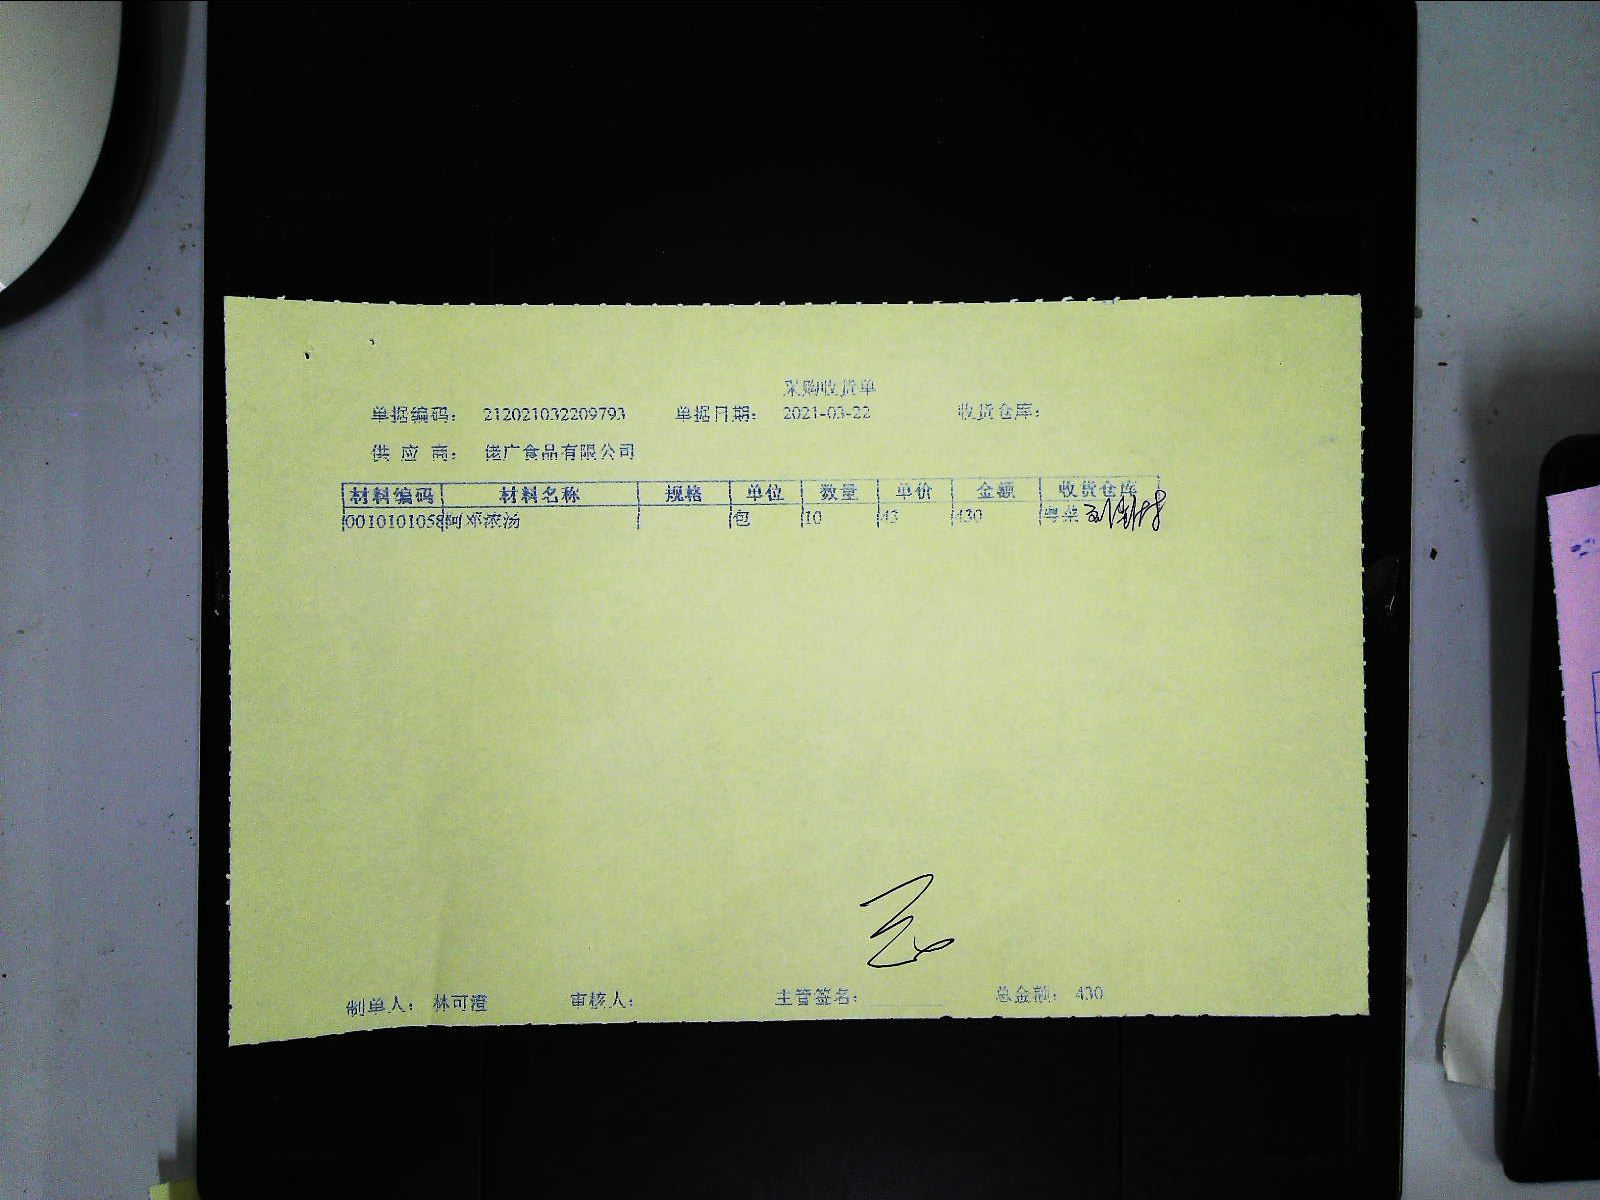 采购收货单
单据编码： 212021032209793 单据日期： 2021-03-22 收货仓库：
供 应 商： 佬广食品有限公司
材料编码 材料名称 规格 单位 数量 单价 金额 收货仓库
0010101058 阿邓浓汤 包 10 43 430 粤菜
制单人： 林可澄 审核人： 主管签名： 总金额： 430